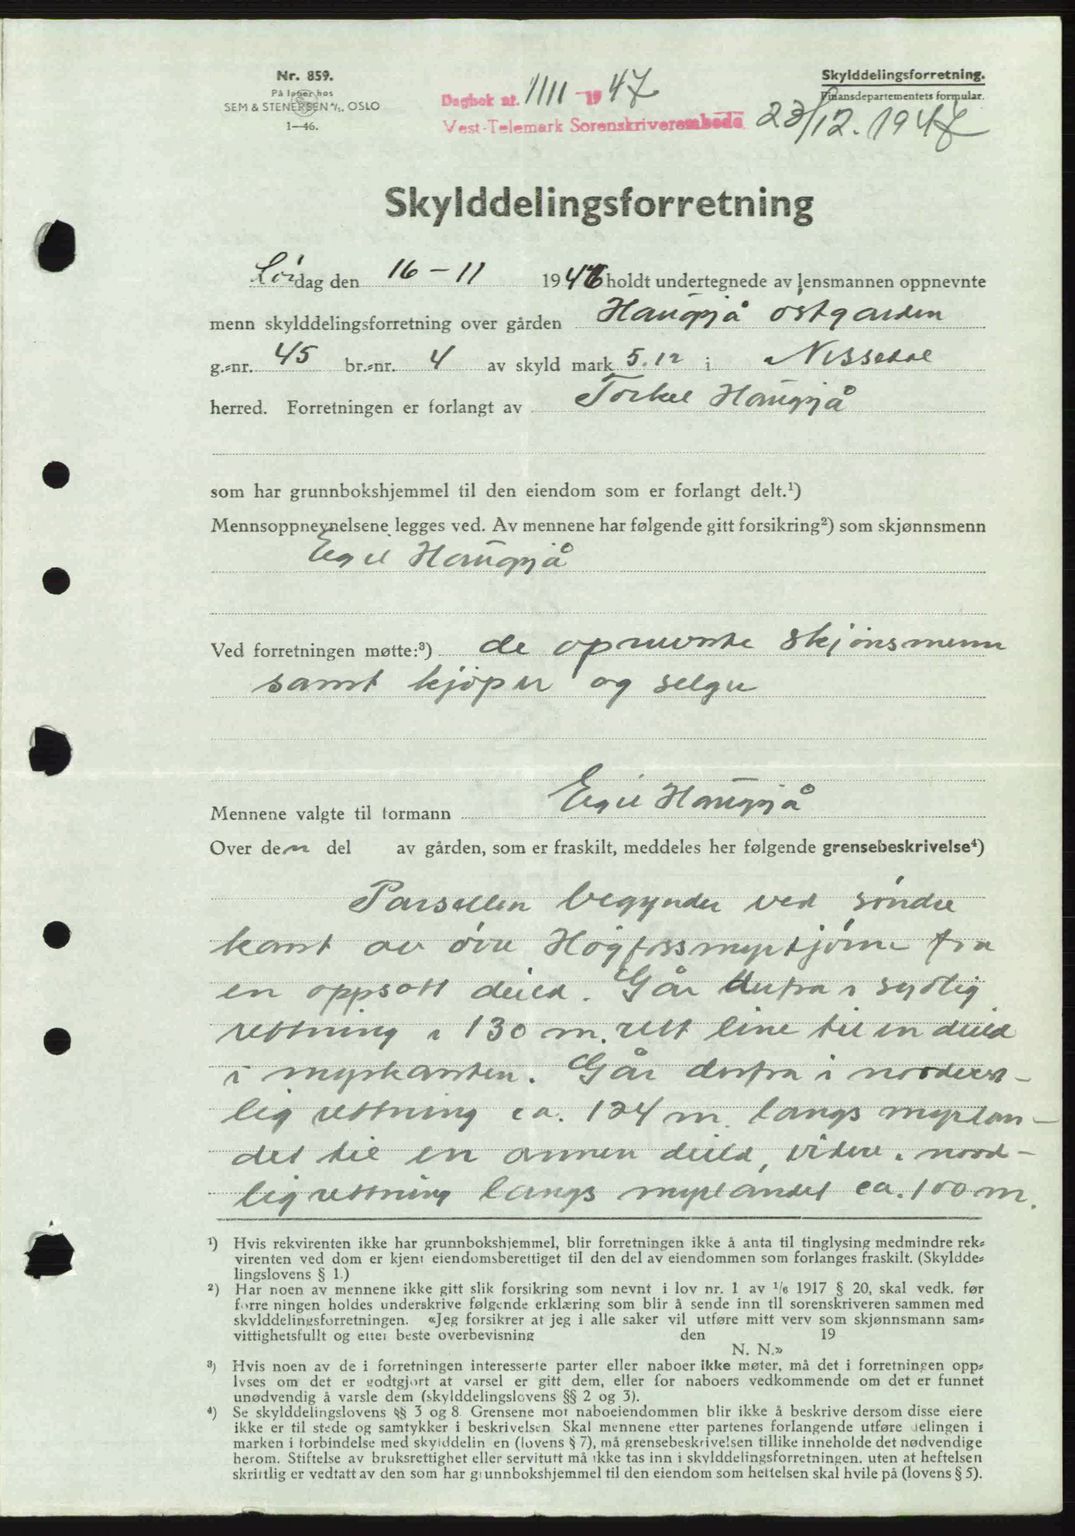 Nr. 859.
På lager hos
SEM & STENERSEN A/S, OSLO
1—46.
Dagbok nr. 1111 - 1947
Vest-Telemark Sorenskriverembede
Skylddelingsforretning.
Finansdepartementets formular.
23/12. 1947
Skylddelingsforretning
Lördag den 16 - 11 1946 holdt undertegnede av lensmannen oppnevnte
menn skylddelingsforretning over gården Haugsjå östgarden
g.-nr. 45 br.-nr. 4 av skyld mark 5.12 i Nissedal
herred. Forretningen er forlangt av Torkel Haugsjå
som har grunnbokshjemmel til den eiendom som er forlangt delt.¹)
Mennsoppnevnelsene legges ved. Av mennene har følgende gitt forsikring²) som skjønnsmenn
Egil Haugsjå
Ved forretningen møtte:³) de opnevnte skjönsmenn
samt kjöper og selger
Mennene valgte til formann Egil Haugsjå
Over den del av gården, som er fraskilt, meddeles her følgende grensebeskrivelse⁴)
Parsellen begynder ved söndre
kant av övre Högfossmyrtjönn fra
en oppsatt deild. Går derfra i sydlig
rettning i 130 m. rett line til en deild
i myrkanten. Går derfra i nordvest-
lig rettning ca. 124 m. langs myrlan-
det til en annen deild, videre i nord-
lig rettning langs myrlandet ca. 100 m.
¹) Hvis rekvirenten ikke har grunnbokshjemmel, blir forretningen ikke å anta til tinglysing medmindre rek-
virenten ved dom er kjent eiendomsberettiget til den del av eiendommen som forlanges fraskilt. (Skyldde-
lingslovens § 1.)
²) Har noen av mennene ikke gitt slik forsikring som nevnt i lov nr. 1 av 1/6 1917 § 20, skal vedk. før
forretningen holdes underskrive følgende erklæring som blir å sende inn til sorenskriveren sammen med
skylddelingsforretningen. «Jeg forsikrer at jeg i alle saker vil utføre mitt verv som skjønnsmann sam-
vittighetsfullt og etter beste overbevisning den 19
N. N.»
³) Hvis noen av de i forretningen interesserte parter eller naboer ikke møter, må det i forretningen opp-
lyses om det er godtgjort at varsel er gitt dem, eller for naboers vedkommende om det er funnet
unødvendig å varsle dem (skylddelingslovens §§ 2 og 3).
⁴) Se skylddelingslovens §§ 3 og 8. Grensene mot naboeiendommen blir ikke å beskrive dersom disse eiere
ikke er til stede og samtykker i beskrivelsen. Skal mennene etter partenes forlangende utføre delingen i
marken i forbindelse med skylddelingen (lovens § 7), må grensebeskrivelsen tillike inneholde det nødvendige
herom. Stiftelse av bruksrettighet eller servitutt må ikke tas inn i skylddelingsforretningen, uten at heftelsen
skriftlig er vedtatt av den som har grunnbokshjemmel til den eiendom som heftelsen skal hvile på (lovens § 5).